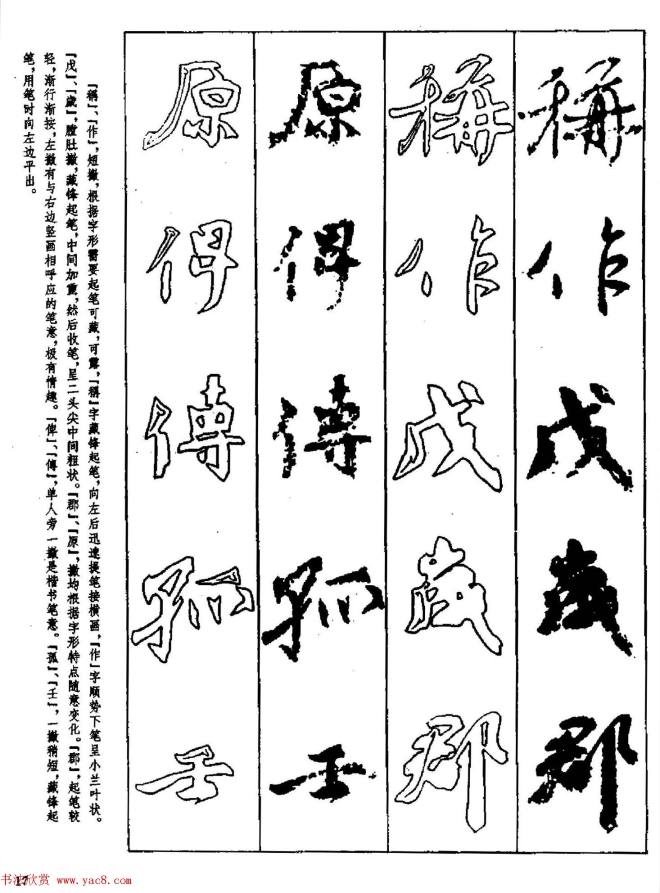 稱
作
戊
歲
郡
稱
作
戊
歲
郡
原
俾
傅
孤
壬
原
俾
傅
孤
壬
「稱」、「作」,短撇,根据字形需要起笔可藏,可露,「稱」字藏锋起笔,向左后迅速提笔接横画,「作」字顺势下笔呈小兰叶状。
「戊」、「歲」,膛肚撇,藏锋起笔,中间加重,然后收笔,呈二头尖中间粗状。「郡」、「原」,撇均根据字形特点随意变化。「郡」,起笔较
轻,渐行渐按,左撇有与右边竖画相呼应的笔意,极有情趣。「俾」、「傅」,单人旁一撇是楷书笔意。「孤」、「壬」,一撇稍短,藏锋起
笔,用笔时向左边平出。
17
书法欣赏 www.yac8.com